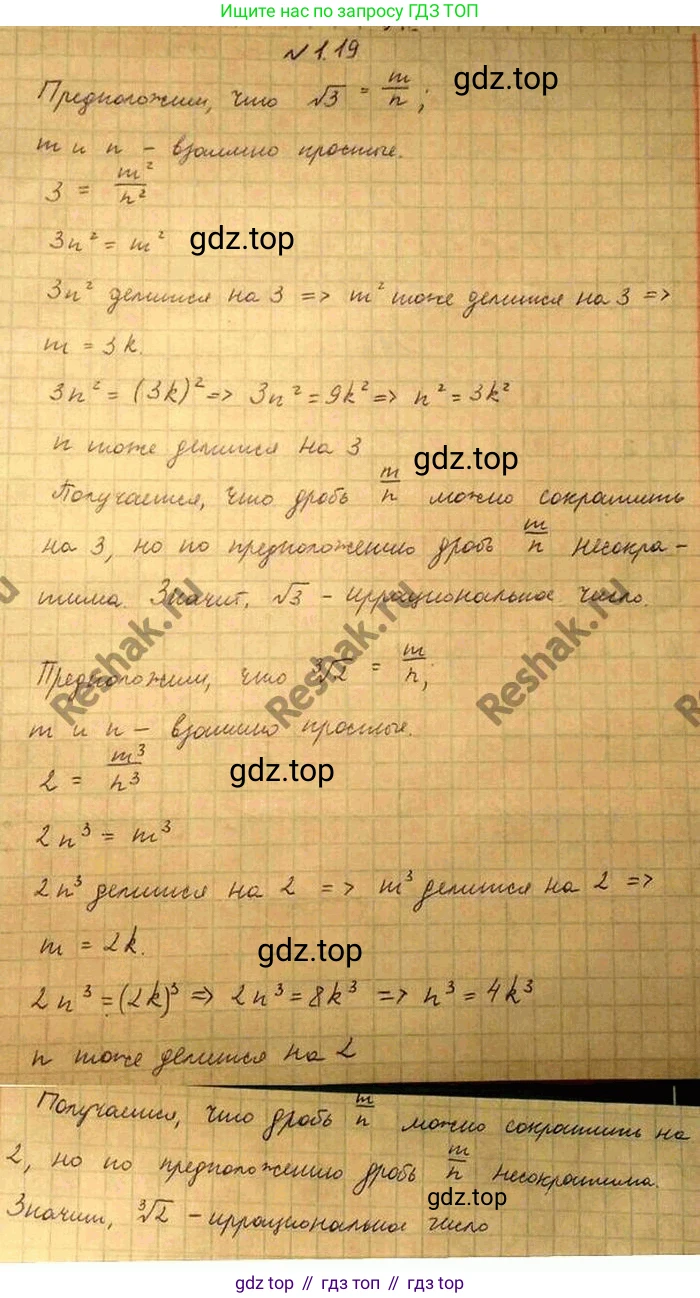 Открывай любое ГДЗ по запросу ГДЗ ТОП
№ 1.19
Предположим, что √3 = m/n ; gdz.top
m и n – взаимно простые.
3 = m²/n²
3n² = m² gdz.top
3n² делится на 3 => m² тоже делится на 3 =>
m = 3k.
3n² = (3k)² => 3n² = 9k² => n² = 3k²
n тоже делится на 3 gdz.top
Получается, что дробь m/n можно сократить
на 3, но по предположению дробь m/n несокра-
тима. Значит, √3 – иррациональное число.
Reshak.ru Reshak.ru Reshak.ru
Предположим, что ∛2 = m/n;
m и n – взаимно простые.
2 = m³/n³ gdz.top
2n³ = m³
2n³ делится на 2 => m³ делится на 2 =>
m = 2k. gdz.top
2n³ = (2k)³ => 2n³ = 8k³ => n³ = 4k³
n тоже делится на 2
Получается, что дробь m/n можно сократить на
2, но по предположению дробь m/n несократима.
gdz.top
Значит, ∛2 – иррациональное число
gdz top // гдз топ // gdz.top